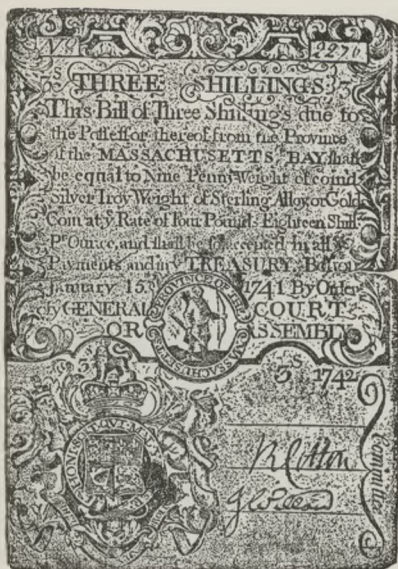 No 2276
3S THREE SHILLINGS 3S
This Bill of Three Shillings due to
the Possessor thereof from the Province
of the MASSACHUSETTS BAY, shall
be equal to Nine Penny Weight of coind
Silver Troy Weight of Sterling Alloy, or Gold
Coin at ye Rate of Four Pounds Eighteen Shill
Pr Ounce, and shall be so accepted in all
Payments and in ye TREASURY. Boston
January 15. 1741 By Order
of ye GENERAL COURT
OR ASSEMBLY
PROVINCE OF THE MASSACHUSETTS
3S 1742
HONI SOIT QUI MAL Y
R Cotton
Committee